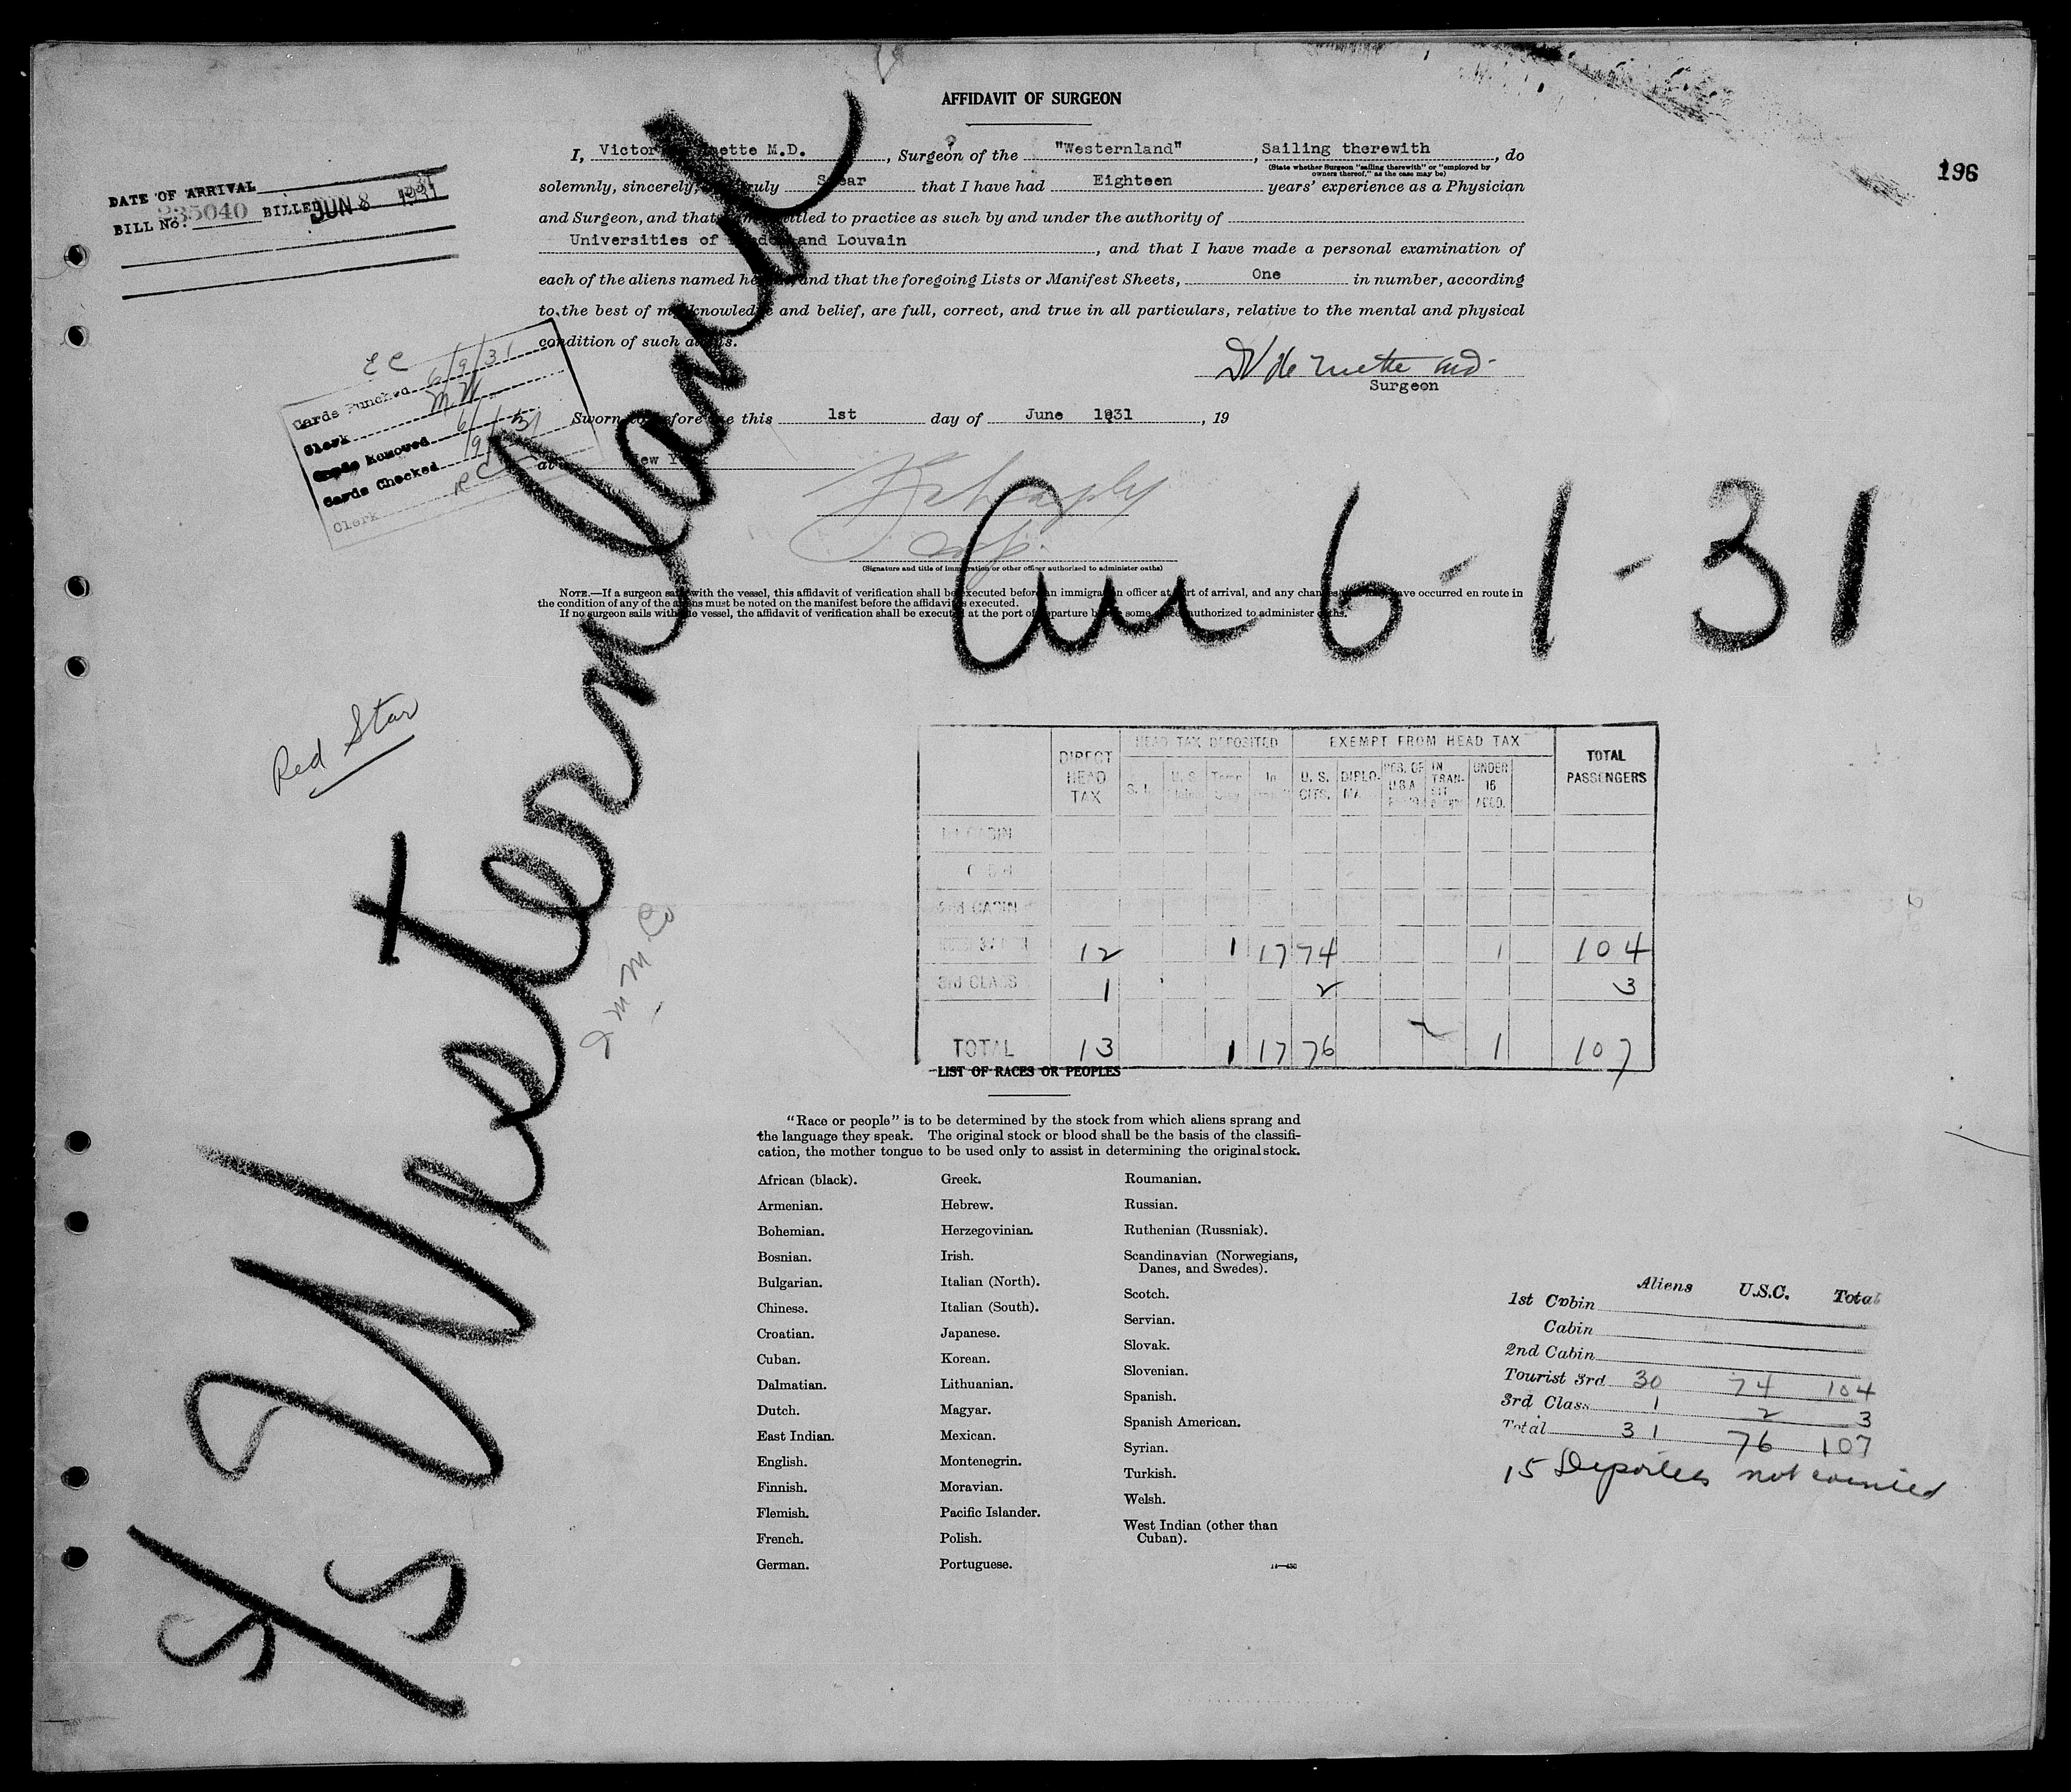 AFFIDAVIT OF SURGEON
196
I, Victor M.D., Surgeon of the "Westernland", Sailing therewith, do
(State whether Surgeon "sailing therewith" or "employed by
owners thereof," as the case may be)
solemnly, sincerely, truly Swear that I have had Eighteen years' experience as a Physician
and Surgeon, and that entitled to practice as such by and under the authority of
Universities of and Louvain, and that I have made a personal examination of
each of the aliens named herein, and that the foregoing Lists or Manifest Sheets, One in number, according
to the best of my knowledge and belief, are full, correct, and true in all particulars, relative to the mental and physical
condition of such aliens.
Surgeon
Sworn to before me this 1st day of June 1931, 19
at New York
(Signature and title of immigration or other officer authorized to administer oaths)
NOTE.—If a surgeon sails with the vessel, this affidavit of verification shall be executed before an immigration officer at port of arrival, and any changes have occurred en route in
the condition of any of the aliens must be noted on the manifest before the affidavit is executed.
If no surgeon sails with the vessel, the affidavit of verification shall be executed at the port of departure before some officer authorized to administer oaths.
DATE OF ARRIVAL
BILL No. 235040 BILLED JUN 8 1931
EC
Cards Punched 6/9/31
Clerk MW
Cards Removed
Cards Checked 6/9/31
Clerk
S/S Westernland
6-1-31
Red Star
DIRECT HEAD TAX
HEAD TAX DEPOSITED
EXEMPT FROM HEAD TAX
TOTAL PASSENGERS
S.I. U.S. In U.S. CITS. DIPLO- IN TRAN- UNDER 16 ACCD.
1st CABIN
CABIN
2nd CABIN
12 1 17 74 1 104
3rd CLASS 1 2 3
TOTAL 13 1 17 76 1 107
LIST OF RACES OR PEOPLES
"Race or people" is to be determined by the stock from which aliens sprang and
the language they speak. The original stock or blood shall be the basis of the classifi-
cation, the mother tongue to be used only to assist in determining the original stock.
African (black).
Armenian.
Bohemian.
Bosnian.
Bulgarian.
Chinese.
Croatian.
Cuban.
Dalmatian.
Dutch.
East Indian.
English.
Finnish.
Flemish.
French.
German.
Greek.
Hebrew.
Herzegovinian.
Irish.
Italian (North).
Italian (South).
Japanese.
Korean.
Lithuanian.
Magyar.
Mexican.
Montenegrin.
Moravian.
Pacific Islander.
Polish.
Portuguese.
Roumanian.
Russian.
Ruthenian (Russniak).
Scandinavian (Norwegians,
Danes, and Swedes).
Scotch.
Servian.
Slovak.
Slovenian.
Spanish.
Spanish American.
Syrian.
Turkish.
Welsh.
West Indian (other than
Cuban).
Aliens U.S.C. Total
1st Cabin
Cabin
2nd Cabin
Tourist 3rd 30 74 104
3rd Class 1 2 3
Total 31 76 107
15 Deportees not counted